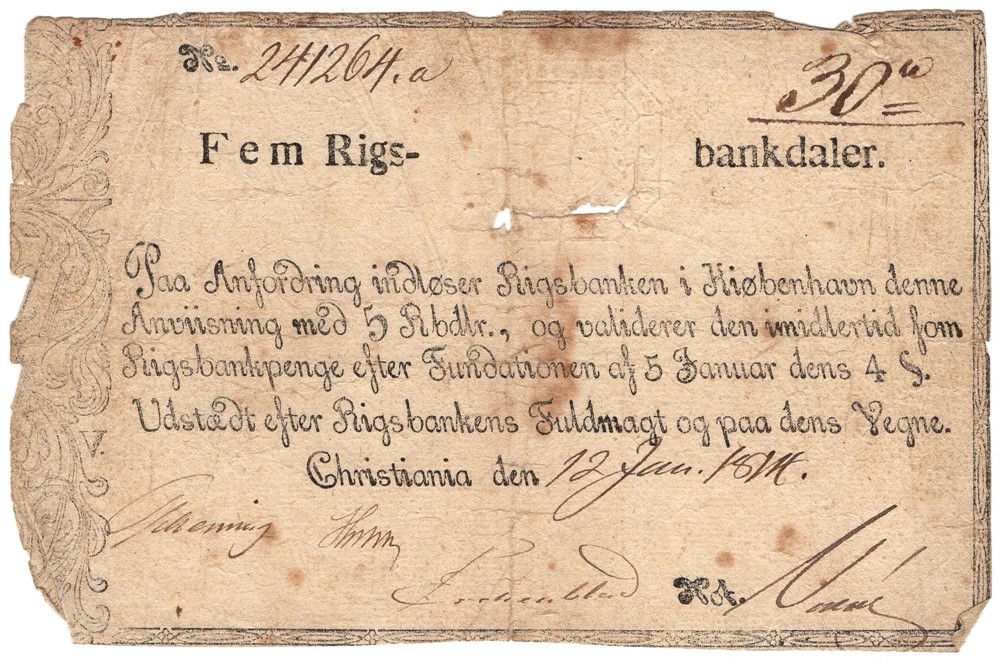 No. 241264.a
30
Fem Rigs- bankdaler.
Paa Anfordring indløser Rigsbanken i Kiøbenhavn denne
Anviisning med 5 Rbdlr., og validerer den imidlertid som
Rigsbankpenge efter Fundationen af 5 Januar dens 4 §.
Udstædt efter Rigsbankens Fuldmagt og paa dens Vegne.
V.
Christiania den 12 Jan. 1814.